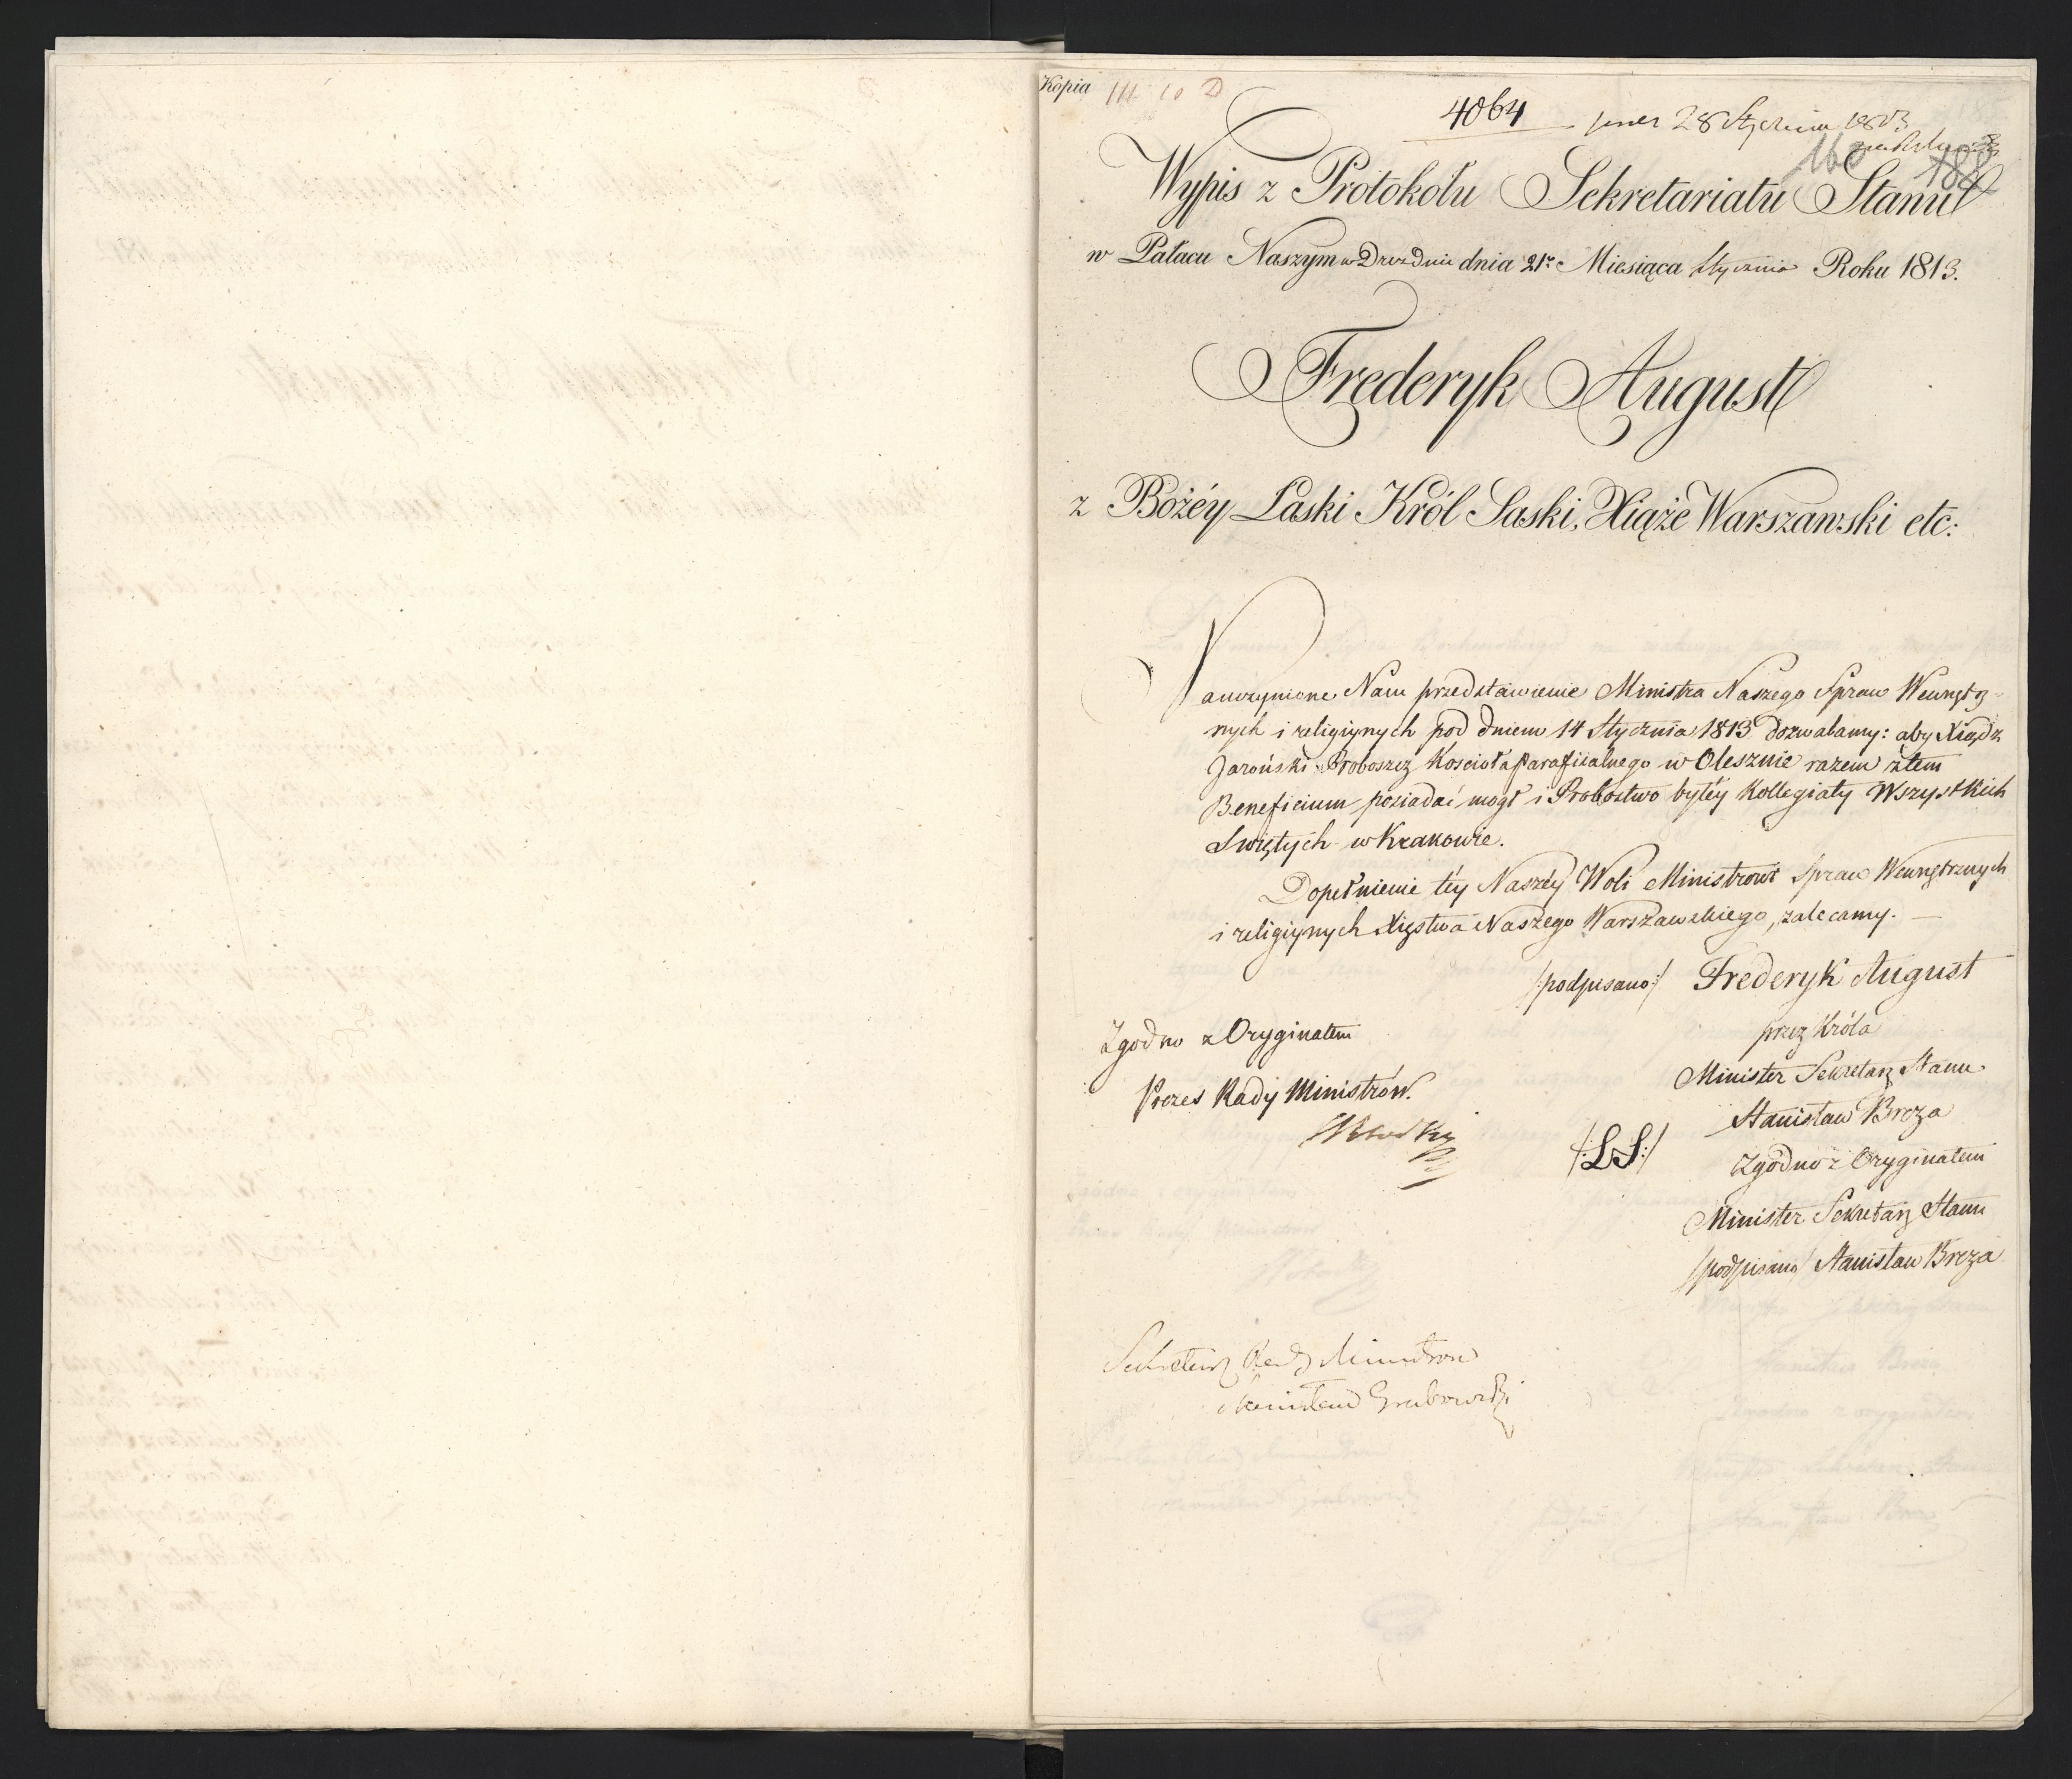 Kopia
III 10 D
4064
28 Stycznia 1813
160 188
Wypis z Protokołu Sekretariatu Stanu
w Pałacu Naszym w Dreznie dnia 21go Miesiąca Stycznia Roku 1813.
Frederyk August
z Bożéy Łaski Król Saski, Xiąże Warszawski etc:
Na uczynione Nam przedstawienie Ministra Naszego Spraw Wewnętrz-
nych i religiynych pod dniem 14 Stycznia 1813 dozwalamy: aby Xiądz
Jaroński Proboszcz Kościoła Parafiialnego w Olesznie razem z tem
Beneficium posiadać mógł i Probostwo byłéy Kollegiaty Wszystkich
Świętych w Krakowie.
Dopełnienie téy Naszéy Woli Ministrowi Spraw Wewnętrznych
i religiynych Xięstwa Naszego Warszawskiego, zalecamy.
/:podpisano:/ Frederyk August
przez Króla
Minister Sekretarz Stanu
Stanisław Breza
/:LS:/
Zgodno z Oryginałem
Minister Sekretarz Stanu
/podpisano/ Stanisław Breza
Zgodno z Oryginałem
Prezes Rady Ministrów.
Sekretarz Rady Ministrów
Stanisław Grabowski